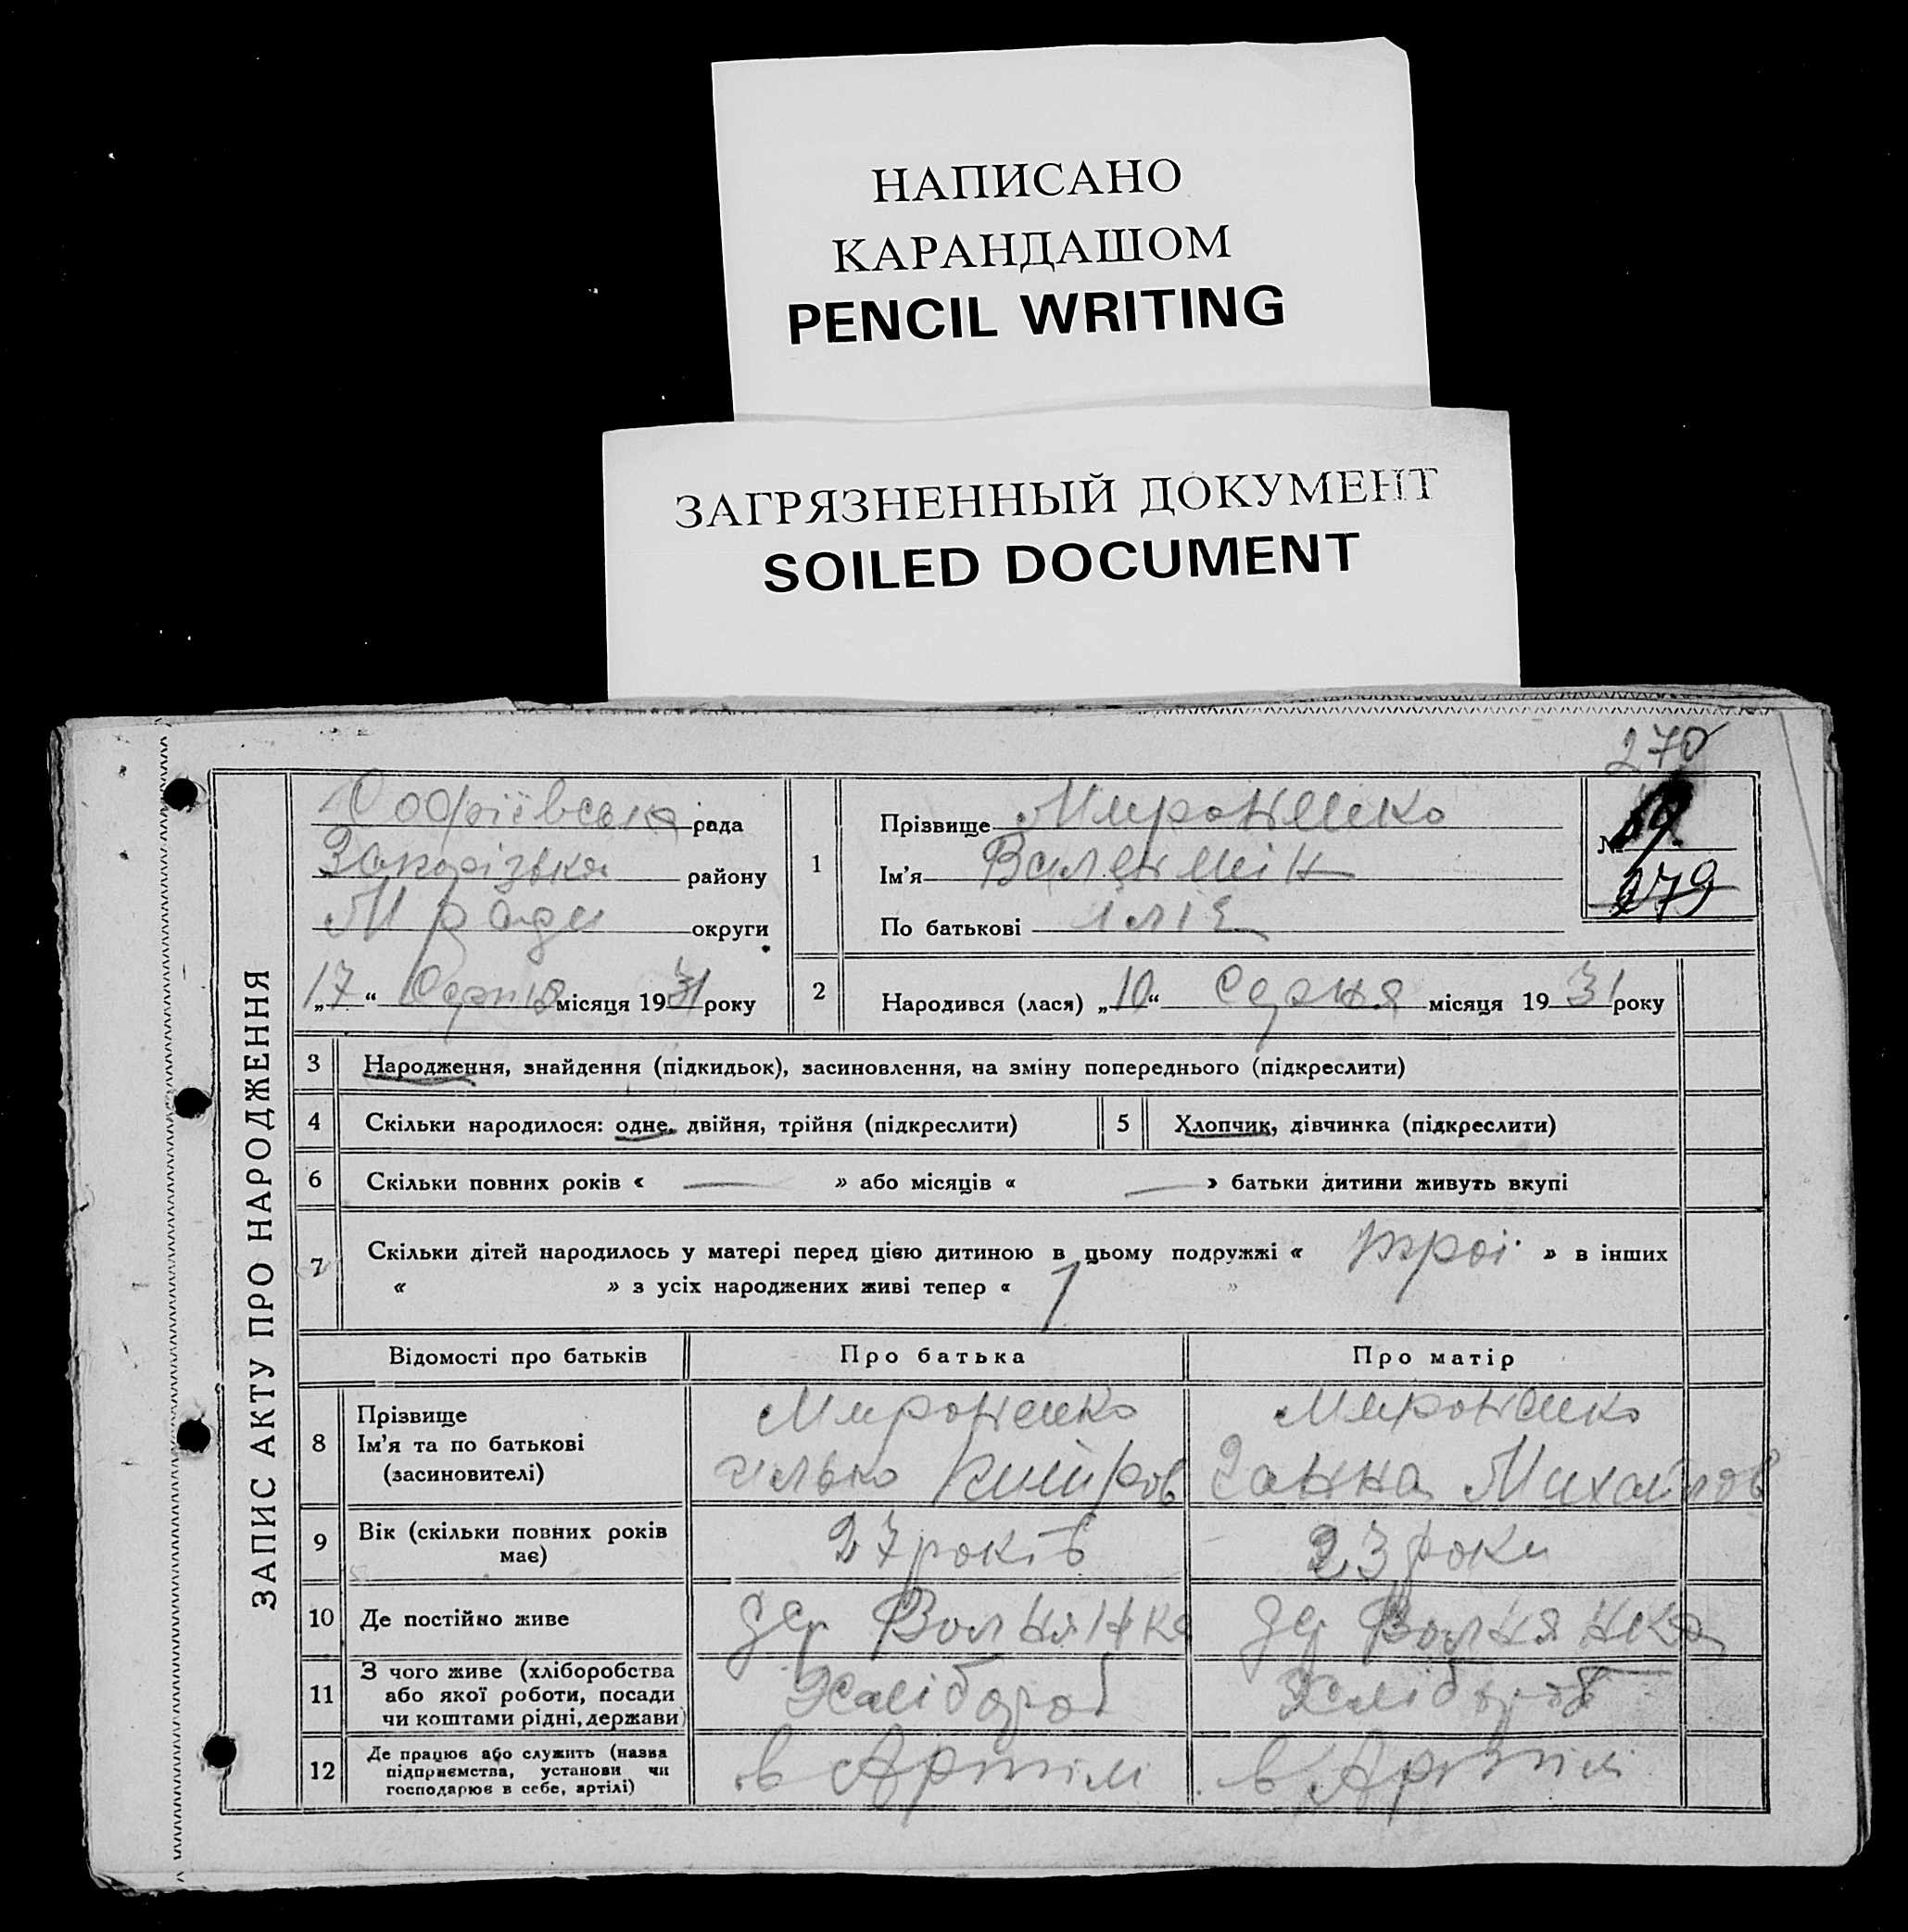 НАПИСАНО
КАРАНДАШОМ
PENCIL WRITING
ЗАГРЯЗНЕННЫЙ ДОКУМЕНТ
SOILED DOCUMENT
270
ЗАПИС АКТУ ПРО НАРОДЖЕННЯ
Софіївська рада
Запорізька району
округи
„17“ Серпня місяця 1931 року
1
Прізвище Мироненко
Ім'я Валентин
По батькові Ілів
№
279
2
Народився (лася) „10“ Серпня місяця 1931 року
3 Народження, знайдення (підкидьок), засиновлення, на зміну попереднього (підкреслити)
4 Скільки народилося: одне, двійня, трійня (підкреслити)
5 Хлопчик, дівчинка (підкреслити)
6 Скільки повних років « — » або місяців « — » батьки дитини живуть вкупі
7 Скільки дітей народилось у матері перед цією дитиною в цьому подружжі « троі » в інших
« » з усіх народжених живі тепер « 1 »
Відомості про батьків Про батька Про матір
8 Прізвище Мироненко Мироненко
Ім'я та по батькові Ілько Ганна Михайлов
(засиновителі)
9 Вік (скільки повних років 27 років 23 роки
має)
10 Де постійно живе дер Волнянка дер Волнянка
11 З чого живе (хліборобства Хлібороб Хлібороб
або якої роботи, посади
чи коштами рідні, держави)
12 Де працює або служить (назва в Артілі в Артілі
підприємства, установи чи
господарює в себе, артілі)